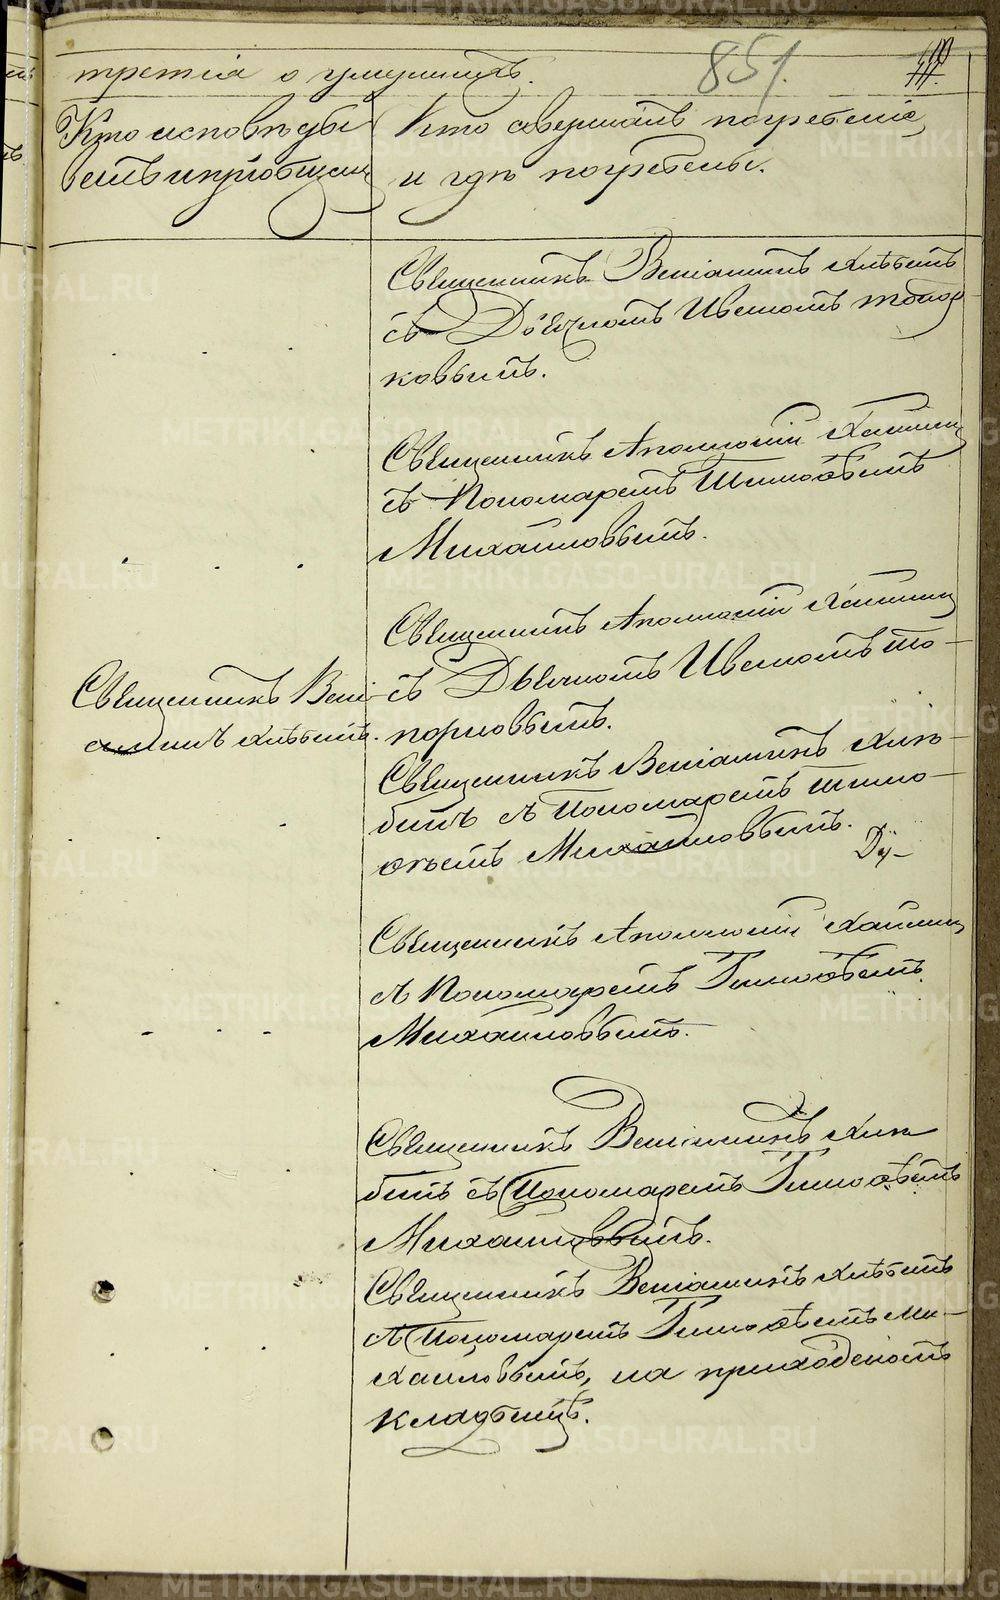 третія о умершихъ.
851.
Кто исповѣды
валъ и пріобщалъ
Кто совершалъ погребеніе,
и гдѣ погребены.
Священникъ Веніаминъ Хлѣбинъ
съ Дьячкомъ Иваномъ Топор
ковымъ.
Священникъ Аполлоній
съ Пономаремъ Тимоѳеемъ
Михайловымъ.
Священникъ Аполлоній
съ Дьячкомъ Иваномъ То-
порковымъ.
Священникъ Вені-
аминъ Хлѣбинъ.
Священникъ Веніаминъ Хлѣ-
бинъ съ Пономаремъ Тимо-
ѳеемъ Михайловымъ.
Священникъ Аполлоній
съ Пономаремъ Тимоѳеемъ
Михайловымъ.
Священникъ Веніаминъ Хлѣ
бинъ съ Пономаремъ Тимоѳеемъ
Михайловымъ.
Священникъ Веніаминъ Хлѣбинъ
съ Пономаремъ Тимоѳеемъ Ми-
хайловымъ, на приходскомъ
кладбищѣ.
METRIKI.GASO-URAL.RU